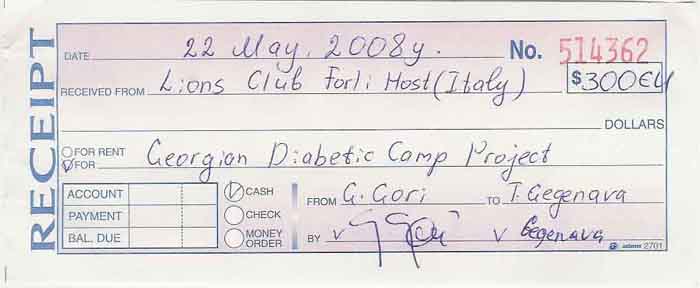 RECEIPT
DATE 22 May. 2008y. No. 514362
RECEIVED FROM Lions Club Forli Host (Italy) $300 EU
DOLLARS
FOR RENT
FOR Georgian Diabetic Camp Project
ACCOUNT CASH FROM G. Gori TO T. Gegenava
PAYMENT CHECK
BAL. DUE MONEY ORDER BY v v Gegenava
adams 2701